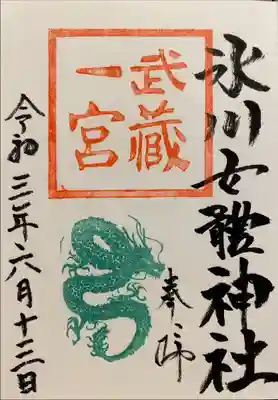 氷川女體神社
武蔵
一宮
奉拝
令和三年六月十三日